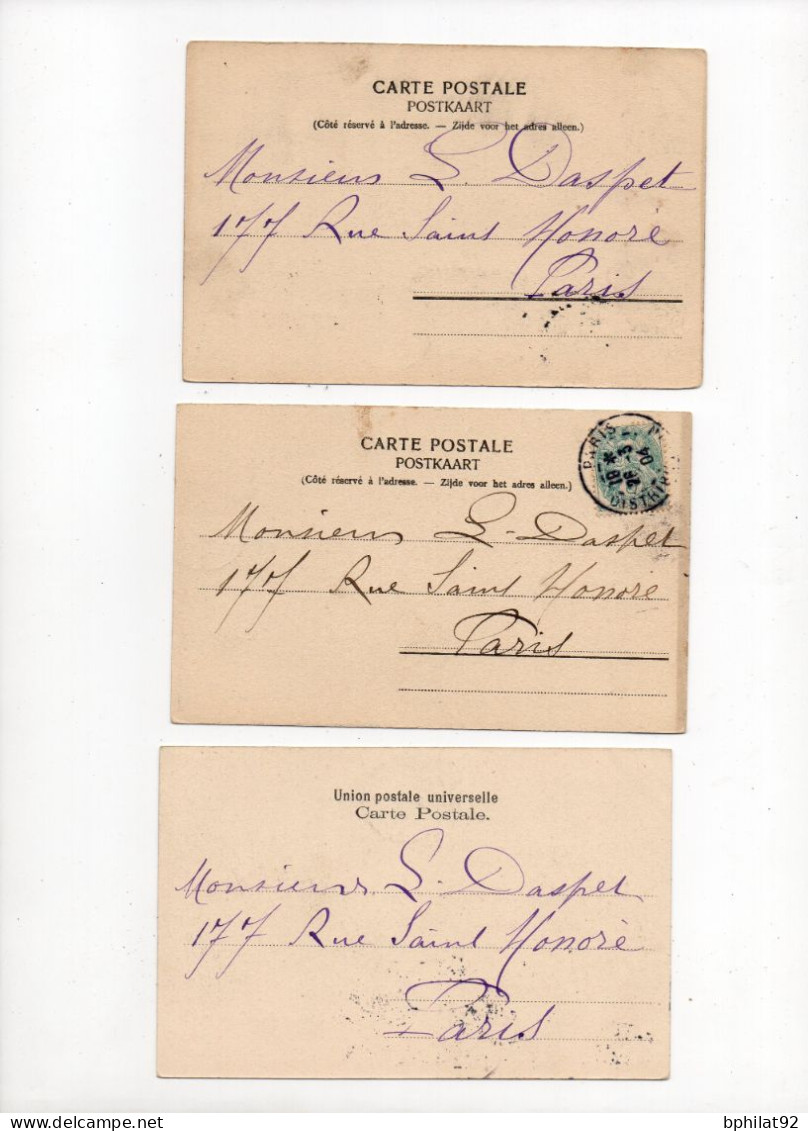 CARTE POSTALE
POSTKAART
(Côté réservé à l'adresse. — Zijde voor het adres alleen.)
Monsieur L. Daspet
177 Rue Saint Honoré
Paris
CARTE POSTALE
POSTKAART
(Côté réservé à l'adresse. — Zijde voor het adres alleen.)
PARIS
26 - 3
04
DISTRIB
Monsieur L. Daspet
177 Rue Saint Honoré
Paris
Union postale universelle
Carte Postale.
Monsieur L. Daspet
177 Rue Saint Honoré
Paris
bphilat92